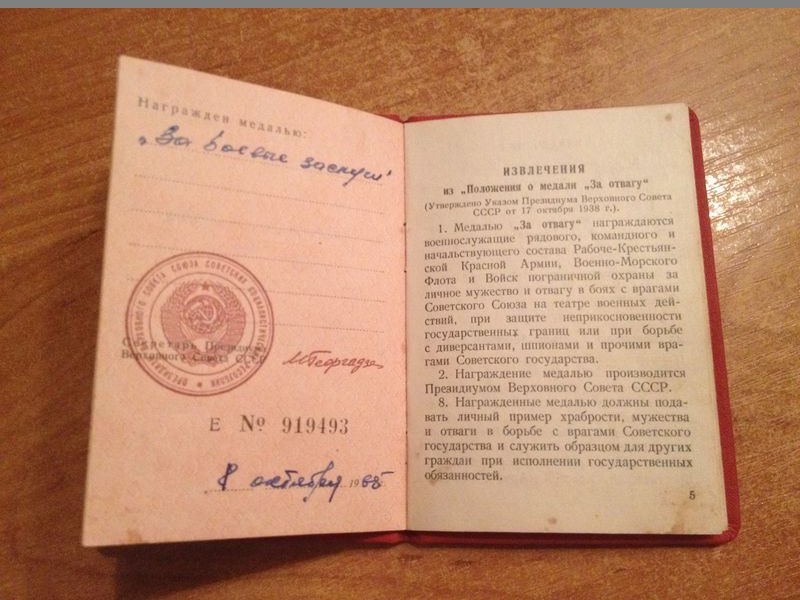 Награжден медалью:
„За боевые заслуги"
ПРЕЗИДИУМ ВЕРХОВНОГО СОВЕТА СОЮЗА СОВЕТСКИХ СОЦИАЛИСТИЧЕСКИХ РЕСПУБЛИК
Секретарь Президиума
Верховного Совета СССР
МГеоргадзе
Е № 919493
8 октября 1965
ИЗВЛЕЧЕНИЯ
из „Положения о медали „За отвагу"
(Утверждено Указом Президиума Верховного Совета
СССР от 17 октября 1938 г.).
1. Медалью „За отвагу" награждаются
военнослужащие рядового, командного и
начальствующего состава Рабоче-Крестьян-
ской Красной Армии, Военно-Морского
Флота и Войск пограничной охраны за
личное мужество и отвагу в боях с врагами
Советского Союза на театре военных дей-
ствий, при защите неприкосновенности
государственных границ или при борьбе
с диверсантами, шпионами и прочими вра-
гами Советского государства.
2. Награждение медалью производится
Президиумом Верховного Совета СССР.
8. Награжденные медалью должны пода-
вать личный пример храбрости, мужества
и отваги в борьбе с врагами Советского
государства и служить образцом для других
граждан при исполнении государственных
обязанностей.
5